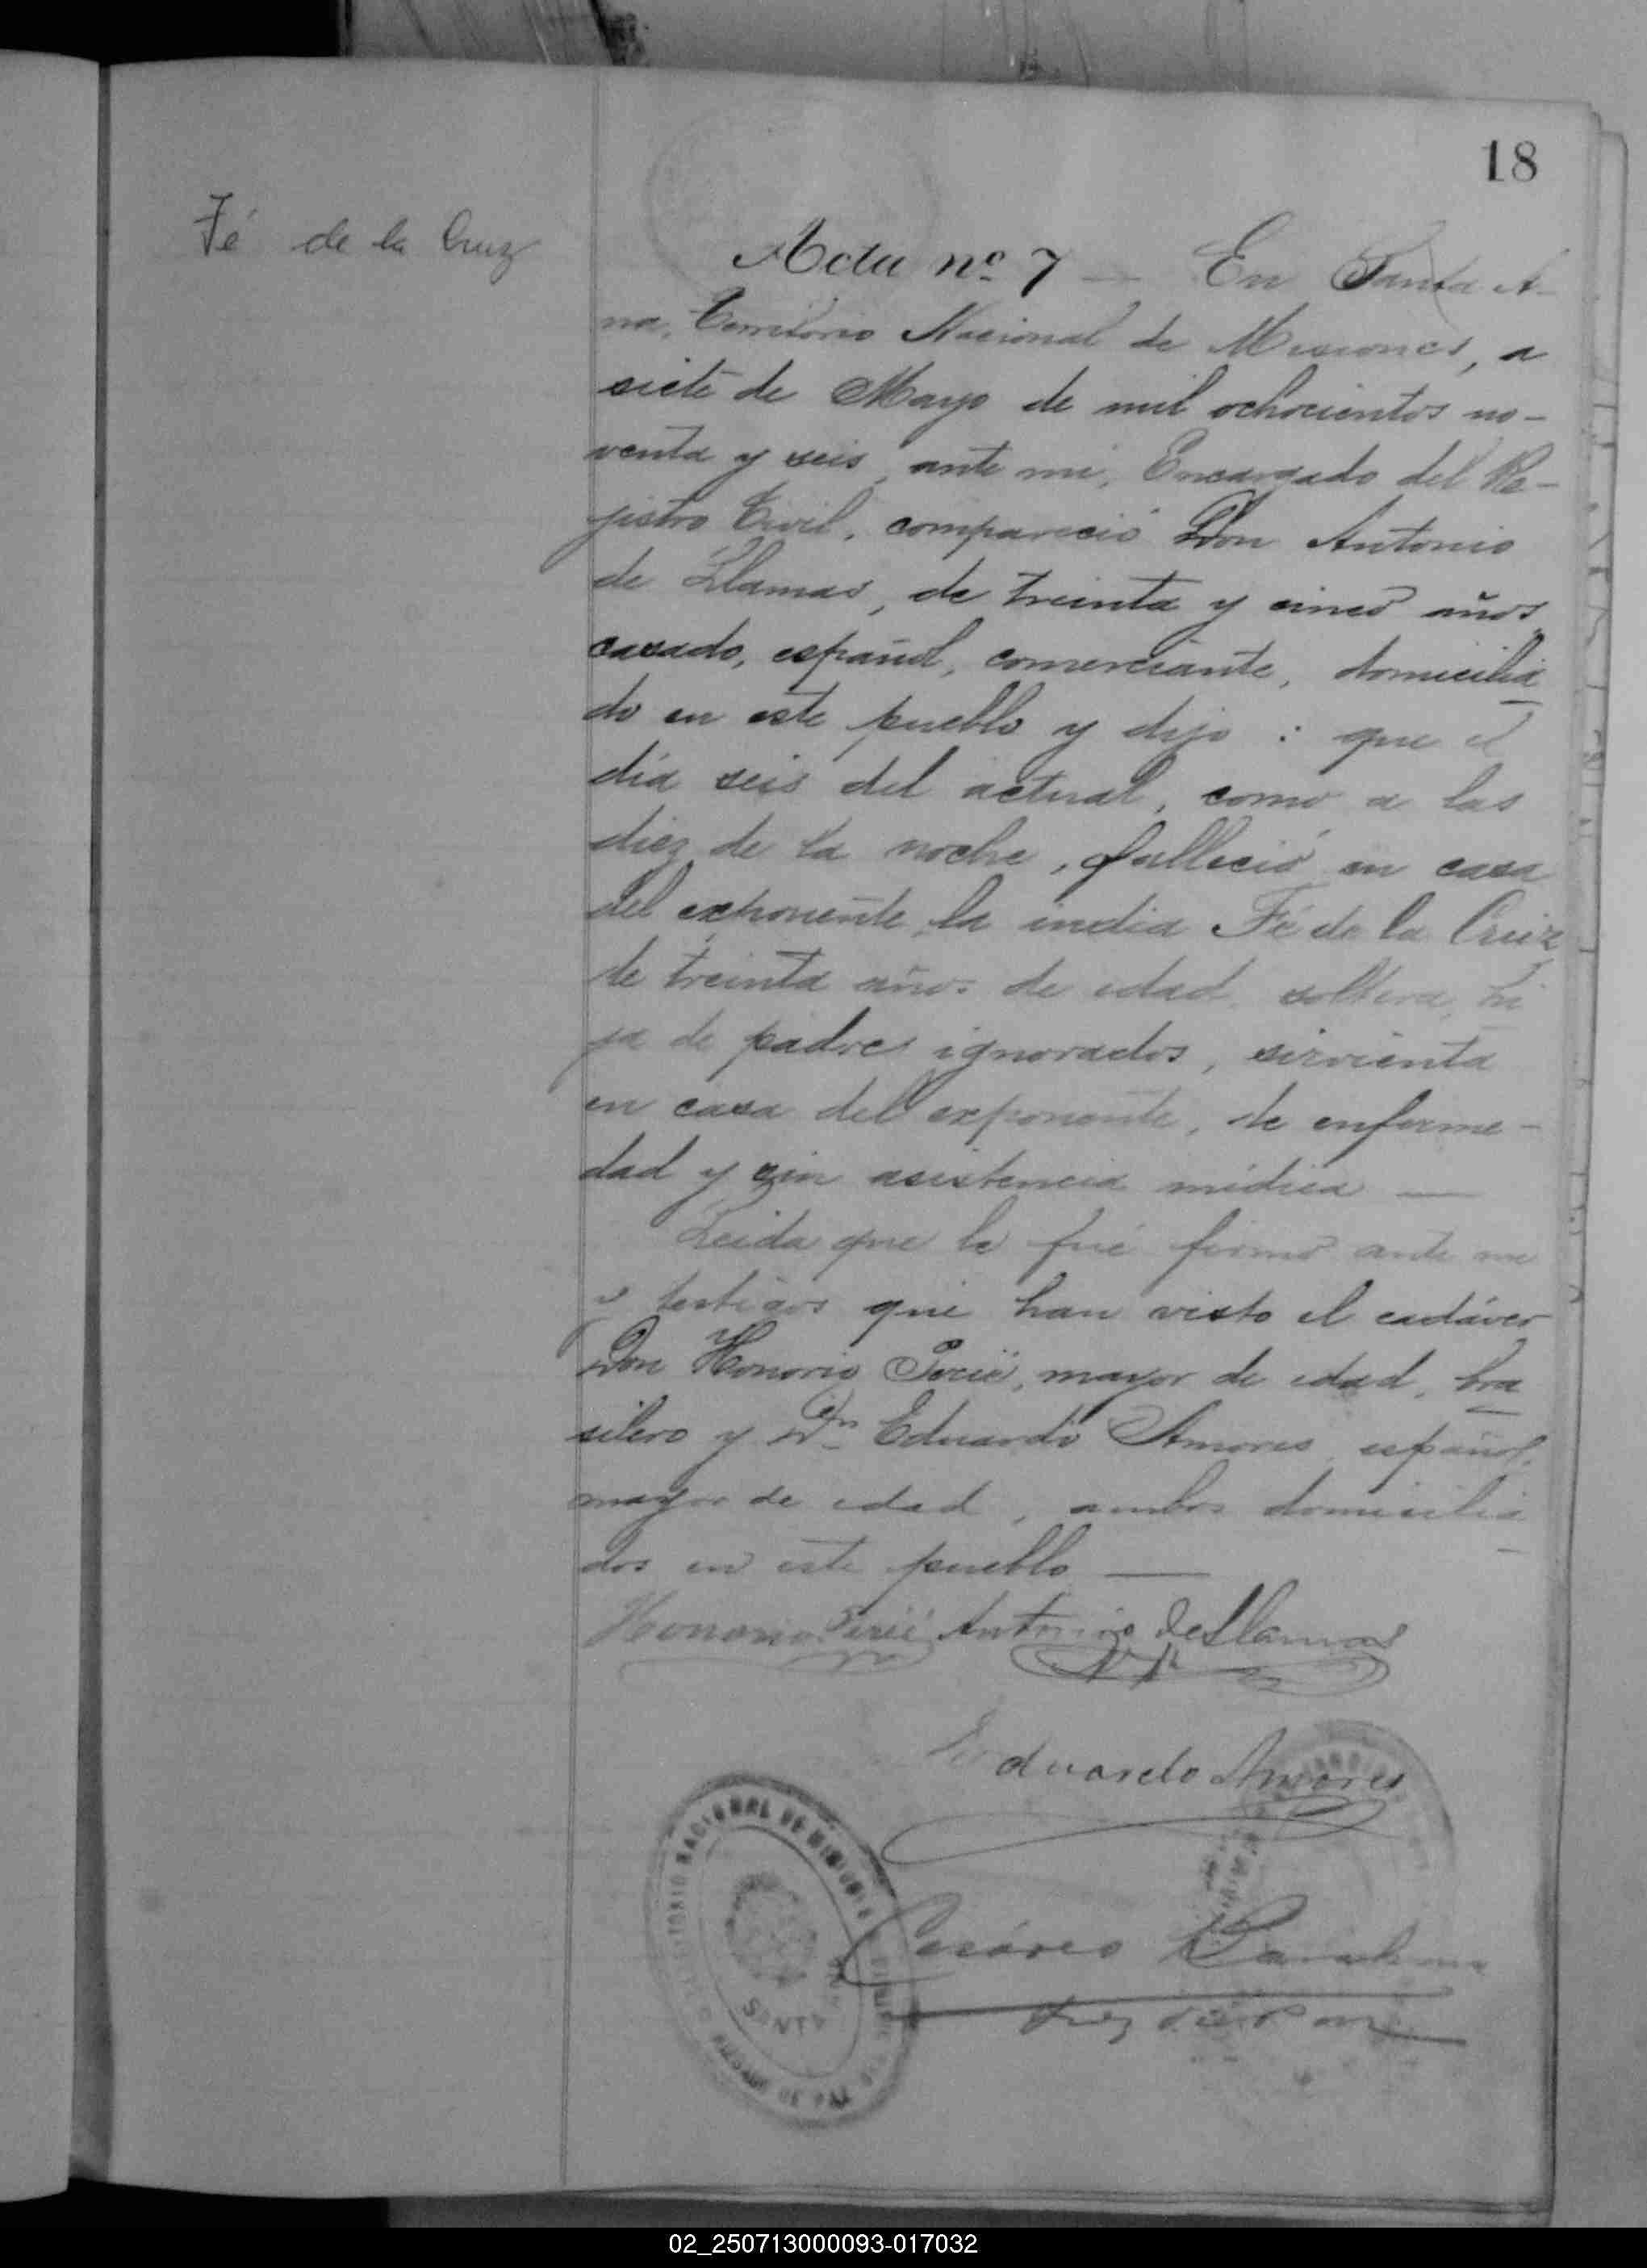 18
Fé de la Cruz
Acta nº 7 — En Santa A-
na, Territorio Nacional de Misiones, a
siete de Mayo de mil ochocientos no-
venta y seis, ante mi, Encargado del Re-
jistro Civil, compareció Don Antonio
de Llamas, de treinta y cinco años,
casado, español, comerciante, domicilia
do en este pueblo y dijo : que el
día seis del actual, como a las
diez de la noche, falleció en casa
del exponente, la india Fé de la Cruz,
de treinta años de edad, soltera, hi
ja de padres ignorados, sirvienta
en casa del exponente, de enferme-
dad y sin asistencia médica —
Leida que le fué firmó ante mi
y testigos que han visto el cadáver
Don Honorio, mayor de edad, bra
silero y Dn Eduardo Amores, español,
mayor de edad, ambos domicilia
dos en este pueblo —
Honorio Antonio de Llamas
Eduardo Amores
TERRITORIO NACIONAL DE MISIONES
SANTA ANA
Cesáreo
Juez de Paz
02_250713000093-017032